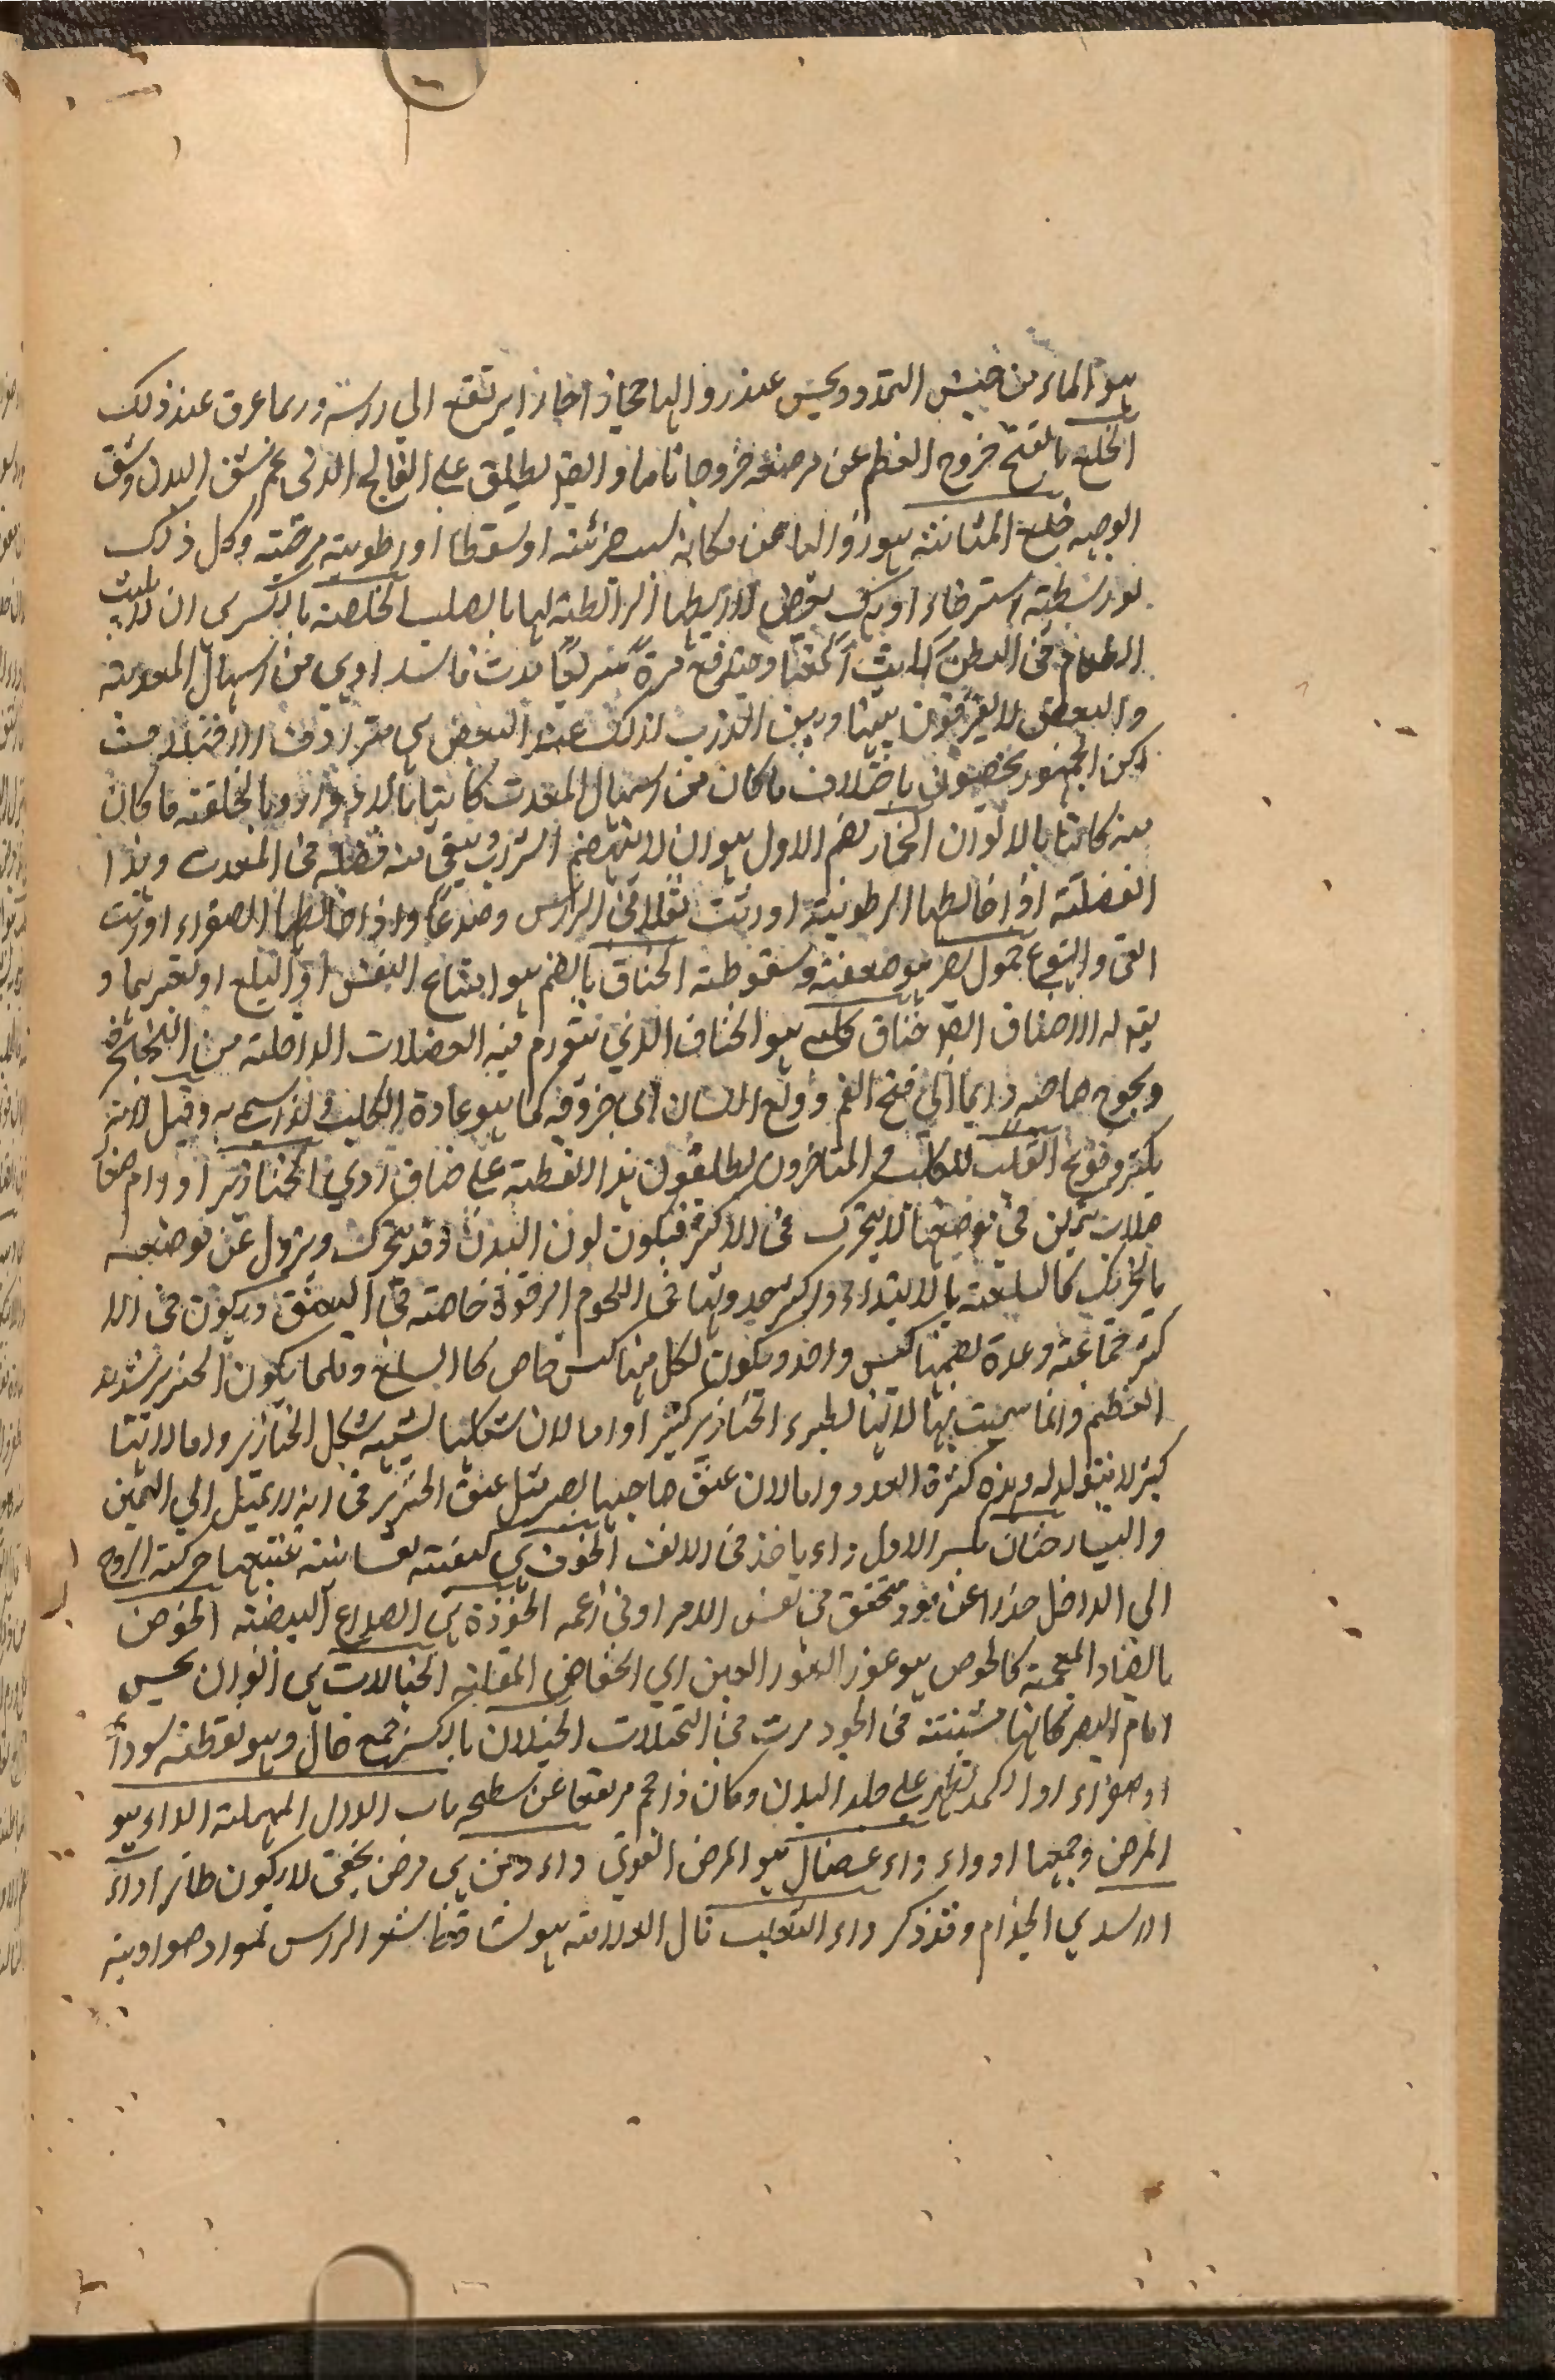 هو الماء من جنس التمدد ويحس عند زوالها بخاز احار ايرتفع الي راسه وربما عرق عند ذلك
الخلع بالفتح خروج العظم عن موضعه خروجا تاما وايضا يطلق علي الفالج الذي عم شق البدن وشق
الوجه خلع المثانة هو زوالها عن مكانها بسبب ضربة او سقطة او رطوبة مرخية وكل ذلك
بواسطة استرخاء او بتك بعض اربطتها الرابطة لها بالصلب الخلفة بالكسر هي ان لا يلبث
الطعام في البطن اللبث المعتاد ويندفع مرة سريعا حدث فاسد اوهي من اسهال المعدية
والبعض لا يفرقون بينها وبين الذرب لذلك عند البعض هي مترادفة
لكن الجمهور يخصون باختلاف ما كان من اسهال المعدة كائنا بالادوار وبالخلفة ما كان
منه كائنا بالالوان الخمار بضم الاول هو ان لا ينهضم الشراب ويبقي منه فضلة في المعدة وهذا
الفضلة اذا خالطها الرطوبة اورثت ثقلا في الراس وصداعا واذا خالطها الصفراء اورثت
القي والتهوع خمول البصر هو ضعفه وسقوطه الخناق بالضم هو امتناع النفس او البلع او تعسرهما و
يقوله الاصناق ايضا خناق كلبي هو الخناق الذي تتورم فيه العضلات الداخلة من الحنجرة
ويحوج صاحبه دايما الي فتح الفم ودلع اللسان الي خروقه كما هو عادة الكلب ولذا سمي به وقيل لانه
يكثر وقوع القلب للكلب والمتاخرون يطلقون هذا اللفظة علي خناق ردي الخنازير اورام صغا
صلاب تمكن في موضعها لا يتحرك في الاكثر فيكون لون البدن وقد يتحرك ويزول عن موضعه
بالتحريك كالسلعة بالابتداء واكثر حدوثها في اللحوم الرخوة خاصة في العنق ويكون في الا
كثر جماعة وعدة يضمها كيس واحد ويكون لكل منها كيس خاص كما السلع وقلما يكون الخنزير شديد
العظم وانما سميت بها لانها يطرء الخنازير كثيرا واما لان شكلها يشبه شكل الخنازير واما لانها
كثيرة التولد له وهذه كثرة العدد واما لان عنق صاحبها يصير مثل عنق الخنزير في انه لا يميل الي اليمين
واليسار خنان بكسر الاول داء ياخذ في الانف الخوف هي كيفية نفسانية تتبعها حركة الروح
الي الداخل حذرا عن موذ متحقق في نفس الامر او في زعمه الخوذة هي الصداع البيضة الخوض
بالضاد المعجمة كالخوص هو غور العين اي انخفاض المقلة الخيالات هي الوان يحس
امام البصر كانها مثبتة في الجو ومرت في التخيلات الخيلان بالكسر جمع خال وهو نقطة سوداء
او صفراء او اكمد تظهر علي جلد البدن وكان ذا حجم مرتفعا عن سطحه باب الدال المهملة الداء هو
المرض وجمعها ادواء داء عضال هو المرض القوي داء دفين هي مرض يخفي لا يكون ظاهرا داء
الاسد هي الجذام وقد ذكر داء الثعلب قال العلامة هو تساقط شعر الراس لمواد صفراوية